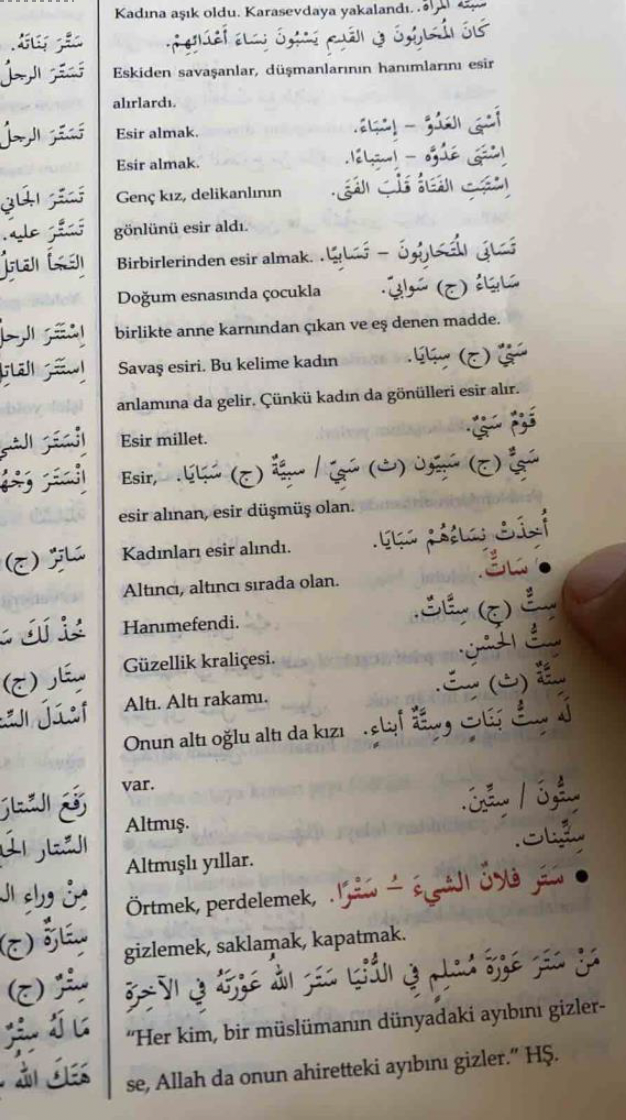 Kadına aşık oldu. Karasevdaya yakalandı. سَبَتْهُ المرأةُ.
كَانَ المُحَارِبُونَ فِي القَدِيمِ يَسْبُونَ نِسَاءَ أَعْدَائِهِمْ.
Eskiden savaşanlar, düşmanlarının hanımlarını esir
alırlardı.
Esir almak. أَسْبَى العَدُوَّ – إِسْبَاءً.
Esir almak. اِسْتَبَى عَدُوَّه – اِستِباءًا.
Genç kız, delikanlının اِسْتَبَتِ الفَتَاةُ قَلْبَ الفَتَى.
gönlünü esir aldı.
Birbirlerinden esir almak. تَسَابَى المُتَحَارِبُونَ – تَسَابِيًا.
Doğum esnasında çocukla سَابِيَاءُ (ج) سَوابِيّ.
birlikte anne karnından çıkan ve eş denen madde.
Savaş esiri. Bu kelime kadın سَبْيٌ (ج) سِبَايَا.
anlamına da gelir. Çünkü kadın da gönülleri esir alır.
Esir millet. قَوْمٌ سَبْيٌ.
Esir, سَبِيٌّ (ج) سَبِيّون (ث) سَبِيّ / سبِيَّةٌ (ج) سَبَايَا.
esir alınan, esir düşmüş olan.
Kadınları esir alındı. أُخِذَتْ نِسَاءُهُمْ سَبَايَا.
Altıncı, altıncı sırada olan. ● سَاتٌّ.
Hanımefendi. سِتٌّ (ج) سِتَّاتٌ.
Güzellik kraliçesi. سِتُّ الحُسْنِ.
Altı. Altı rakamı. سِتَّةٌ (ث) سِتّ.
Onun altı oğlu altı da kızı لَه سِتُّ بَنَاتٍ وسِتَّةُ أبناءٍ.
var.
Altmış. سِتُّونَ / سِتِّينَ.
Altmışlı yıllar. سِتِّينات.
Örtmek, perdelemek, ● سَتَر فلانٌ الشيءَ – سَتْرًا.
gizlemek, saklamak, kapatmak.
مَنْ سَتَرَ عَوْرَةَ مُسْلِمٍ فِي الدُّنْيَا سَتَرَ اللهُ عَوْرَتَهُ فِي الآخِرَةِ
“Her kim, bir müslümanın dünyadaki ayıbını gizler-
se, Allah da onun ahiretteki ayıbını gizler.” HŞ.
سَتَّرَ بَنَاتَهُ.
تَسَتَّرَ الرجلُ
تَسَتَّرَ الرجلُ
تَسَتَّرَ الجَانِي
تَسَتَّرَ عليه.
اِلتَجَأَ القاتِلُ
اِسْتَتَرَ الرجلُ
اِستَتَرَ القاتِلُ
اِنْسَتَرَ الشي
اِنْسَتَرَ وَجْهُ
سَاتِرٌ (ج)
خُذْ لَكَ
سِتَار (ج)
أَسْدَلَ
رَفَعَ السِّتارَ
السِّتار
مِنْ وراءِ
سِتَارَةٌ (ج)
سِتْرٌ (ج)
مَا لَهُ سِتْرٌ
هَتَكَ اللهُ